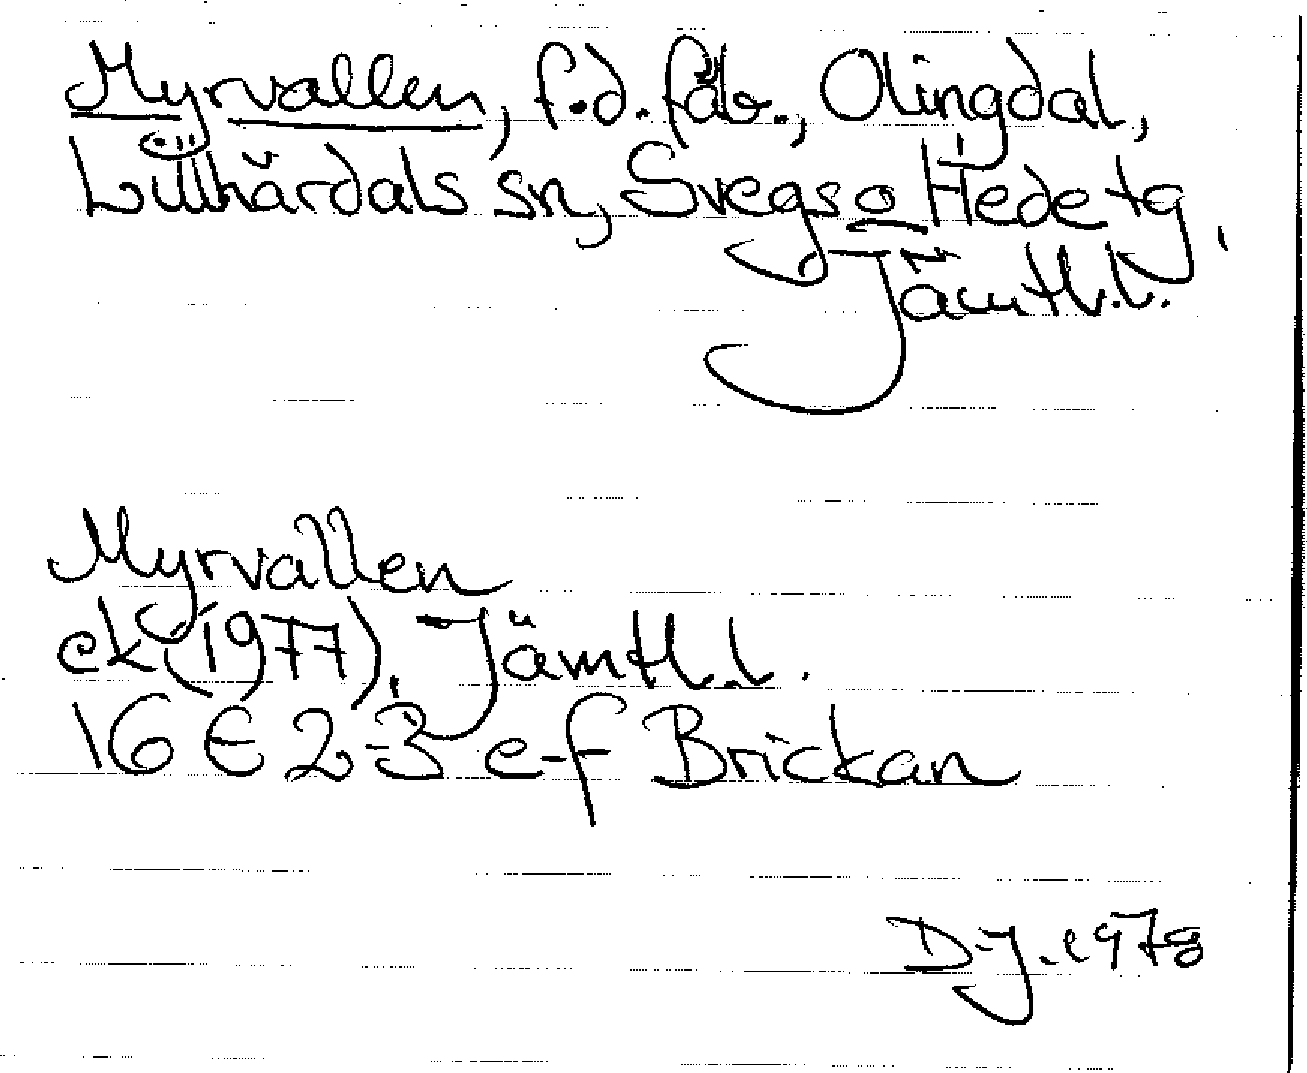 Myrvallen, f.d. fäb., Olingdal,
Lillhärdals sn, Svegs o Hede tg,
Jämtl.l.
Myrvallen
ek (1977), Jämtl.l.
16 E 2-3 e-f Brickan
D-J. 1978